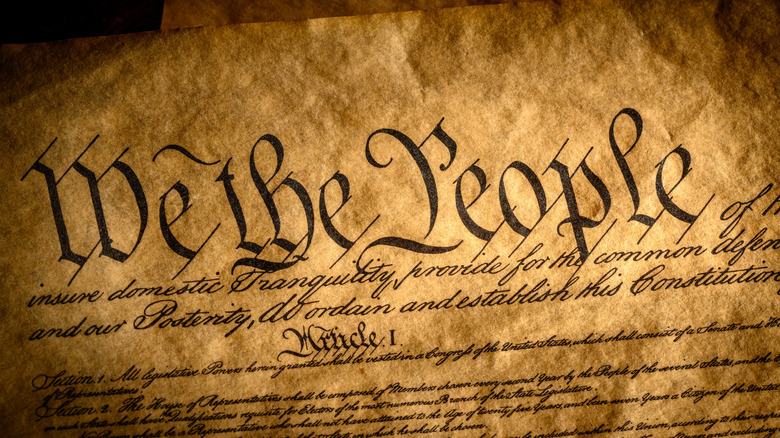 We the People of
insure domestic Tranquility, provide for the common defen
and our Posterity, do ordain and establish this Constitution
Article. I.
Section. 1. All legislative Powers herein granted shall be vested in a Congress of the United States, which shall consist of a Senate and
of Representatives.
Section. 2. The House of Representatives shall be composed of Members chosen every second Year by the People of the several States, and the
in each State shall have the Qualifications requisite for Electors of the most numerous Branch of the State Legislature.
No Person shall be a Representative who shall not have attained to the Age of twenty five Years, and been seven Years a Citizen of the United
in which he shall be chosen.
within this Union, according to their